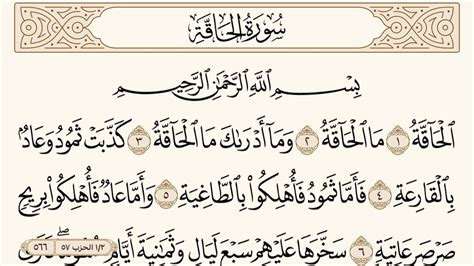 سُورَةُ الحَاقَّةِ
بِسْمِ ٱللَّهِ ٱلرَّحْمَٰنِ ٱلرَّحِيمِ
ٱلْحَآقَّةُ ١ مَا ٱلْحَآقَّةُ ٢ وَمَآ أَدْرَىٰكَ مَا ٱلْحَآقَّةُ ٣ كَذَّبَتْ ثَمُودُ وَعَادٌۢ
بِٱلْقَارِعَةِ ٤ فَأَمَّا ثَمُودُ فَأُهْلِكُوا۟ بِٱلطَّاغِيَةِ ٥ وَأَمَّا عَادٌ فَأُهْلِكُوا۟ بِرِيحٍ
صَرْصَرٍ عَاتِيَةٍ ٦ سَخَّرَهَا عَلَيْهِمْ سَبْعَ لَيَالٍ وَثَمَٰنِيَةَ أَيَّامٍ
١/٢ الحزب ٥٧ ٥٦٦